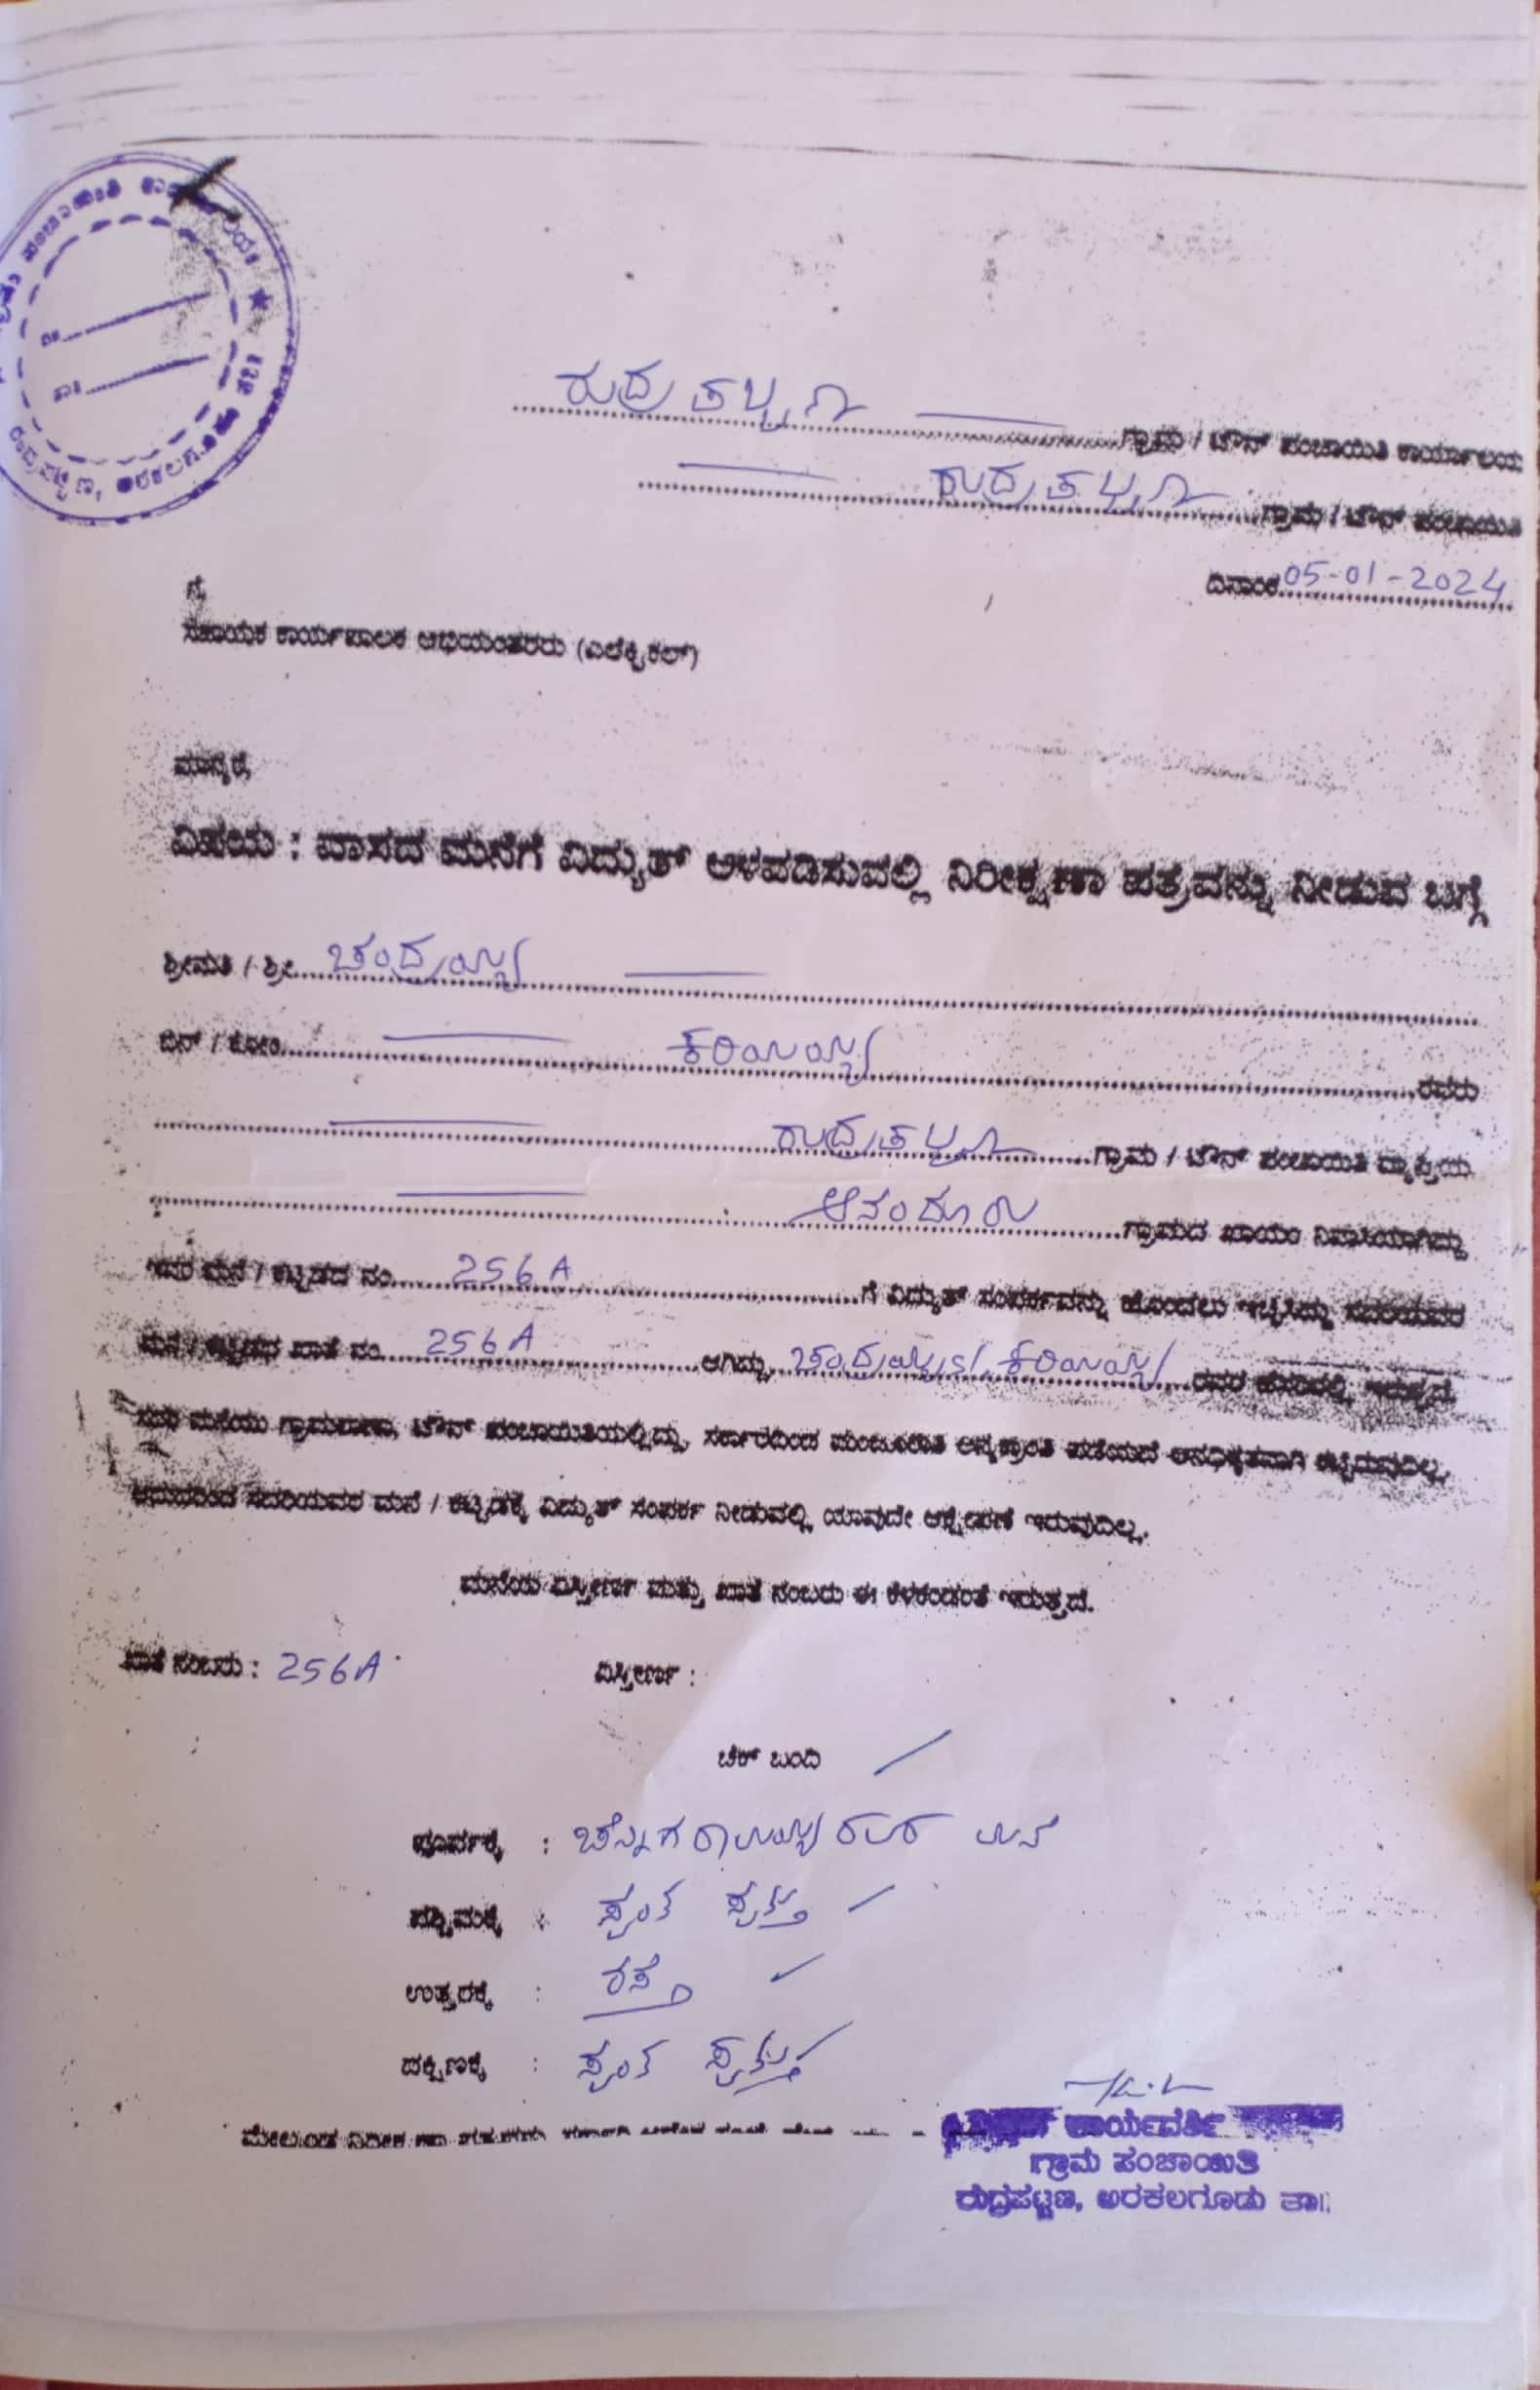 ರುದ್ರಪಟ್ಟಣ ಗ್ರಾಮ / ಟೌನ್ ಪಂಚಾಯಿತಿ ಕಾರ್ಯಾಲಯ
ರುದ್ರಪಟ್ಟಣ ಗ್ರಾಮ / ಟೌನ್ ಪಂಚಾಯಿತಿ
ದಿನಾಂಕ 05-01-2024
ಗೆ,
ಸಹಾಯಕ ಕಾರ್ಯಪಾಲಕ ಅಭಿಯಂತರರು (ಎಲೆಕ್ಟ್ರಿಕಲ್)
ಮಾನ್ಯರೆ,
ವಿಷಯ : ವಾಸದ ಮನೆಗೆ ವಿದ್ಯುತ್ ಅಳವಡಿಸುವಲ್ಲಿ ನಿರೀಕ್ಷಣಾ ಪತ್ರವನ್ನು ನೀಡುವ ಬಗ್ಗೆ
ಶ್ರೀಮತಿ / ಶ್ರೀ ಚಂದ್ರಯ್ಯ
ಬಿನ್ / ಕೋಂ ಕರಿಯಯ್ಯ ರವರು
ರುದ್ರಪಟ್ಟಣ ಗ್ರಾಮ / ಟೌನ್ ಪಂಚಾಯಿತಿ ವ್ಯಾಪ್ತಿಯ
ಗ್ರಾಮದ ಖಾಯಂ ನಿವಾಸಿಯಾಗಿದ್ದು
ಇವರ ಮನೆ / ಕಟ್ಟಡದ ನಂ. 256A ಗೆ ವಿದ್ಯುತ್ ಸಂಪರ್ಕವನ್ನು ಹೊಂದಲು ಇಚ್ಛಿಸಿದ್ದು ಸದರಿಯವರ
ಮನೆ / ಕಟ್ಟಡದ ಖಾತೆ ನಂ. 256A ಆಗಿದ್ದು, ಚಂದ್ರಯ್ಯ s/. ಕರಿಯಯ್ಯ ರವರ ಹೆಸರಿನಲ್ಲಿ ಇರುತ್ತದೆ.
ಮನೆಯು ಗ್ರಾಮಠಾಣಾ, ಟೌನ್ ಪಂಚಾಯಿತಿಯಲ್ಲಿದ್ದು, ಸರ್ಕಾರದಿಂದ ಮಂಜೂರಾತಿ ಪಡೆಯದೆ ಅನಧಿಕೃತವಾಗಿ ಕಟ್ಟಿರುವುದಿಲ್ಲ.
ಆದುದರಿಂದ ಸದರಿಯವರ ಮನೆ / ಕಟ್ಟಡಕ್ಕೆ ವಿದ್ಯುತ್ ಸಂಪರ್ಕ ನೀಡುವಲ್ಲಿ ಯಾವುದೇ ಆಕ್ಷೇಪಣೆ ಇರುವುದಿಲ್ಲ.
ಮನೆಯ ವಿಸ್ತೀರ್ಣ ಮತ್ತು ಖಾತೆ ನಂಬರು ಈ ಕೆಳಕಂಡಂತೆ ಇರುತ್ತದೆ.
ಖಾತೆ ನಂಬರು : 256A ವಿಸ್ತೀರ್ಣ :
ಚೆಕ್ ಬಂದಿ
ಪೂರ್ವಕ್ಕೆ : ರವರ ಮನೆ
ಪಶ್ಚಿಮಕ್ಕೆ : ಸ್ವಂತ ಸ್ವತ್ತು
ಉತ್ತರಕ್ಕೆ : ರಸ್ತೆ
ದಕ್ಷಿಣಕ್ಕೆ : ಸ್ವಂತ ಸ್ವತ್ತು
ಮೇಲ್ಕಂಡ
ಕಾರ್ಯದರ್ಶಿ
ಗ್ರಾಮ ಪಂಚಾಯಿತಿ
ರುದ್ರಪಟ್ಟಣ, ಅರಕಲಗೂಡು ತಾ॥